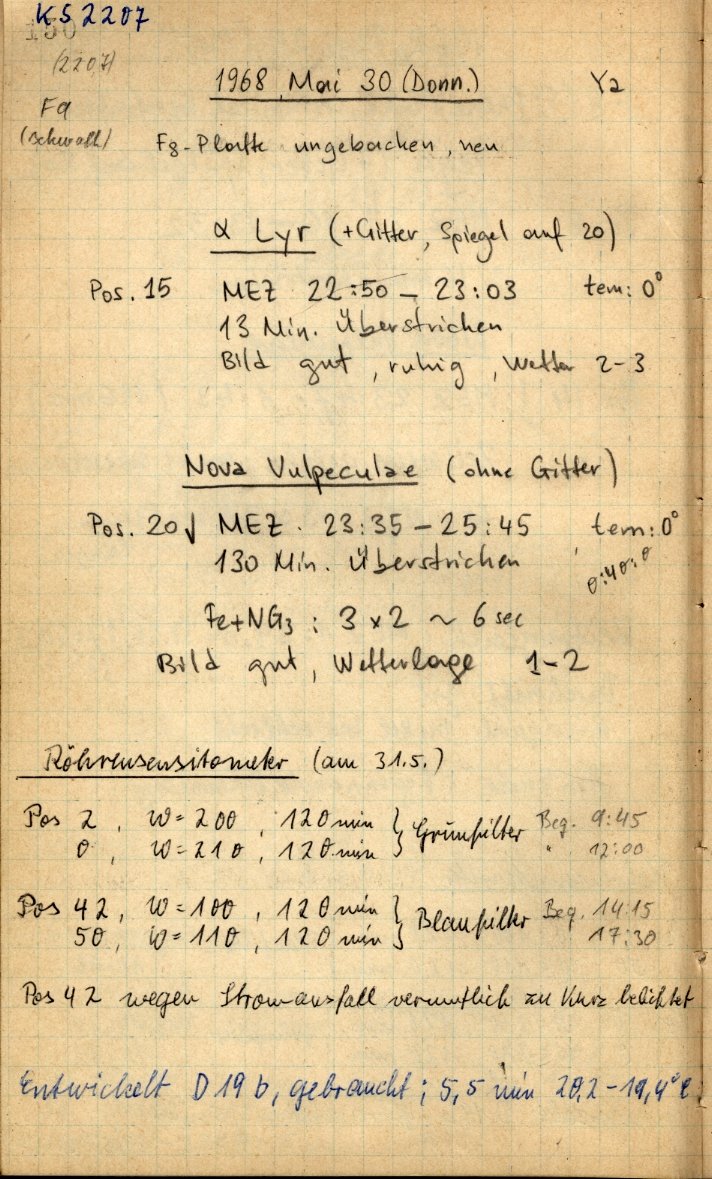 KS 2207
(2207)
1968 Mai 30 (Donn.) Ya
Fa
(Schwall)
Fg-Platte ungebacken, neu
α Lyr (+Gitter, Spiegel auf 20)
Pos. 15 MEZ 22:50 – 23:03 tem: 0°
13 Min. Überstrichen
Bild gut, ruhig, Wetter 2-3
Nova Vulpeculae (ohne Gitter)
Pos. 20 MEZ. 23:35 – 25:45 tem: 0°
130 Min. Überstrichen
Fe+NG3 : 3 x 2 ~ 6 sec
Bild gut, Wetterlage 1-2
Röhrensensitometer (am 31.5.)
Pos 2, W=200, 120 min } Grünfilter Beg. 9:45
0, W=210, 120 min } " 12:00
Pos 42, W=100, 120 min } Blaufilter Beg. 14:15
50, W=110, 120 min } 17:30
Pos 42 wegen Stromausfall vermutlich zu kurz belichtet
Entwickelt D19b, gebraucht; 5,5 min 20,2-19,4°C